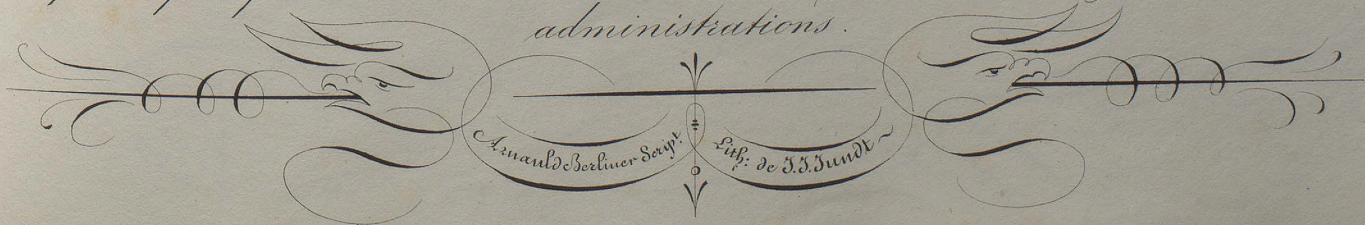 administrations.
Arnauld Berliner Script.
Lith: de J.J. Jundt